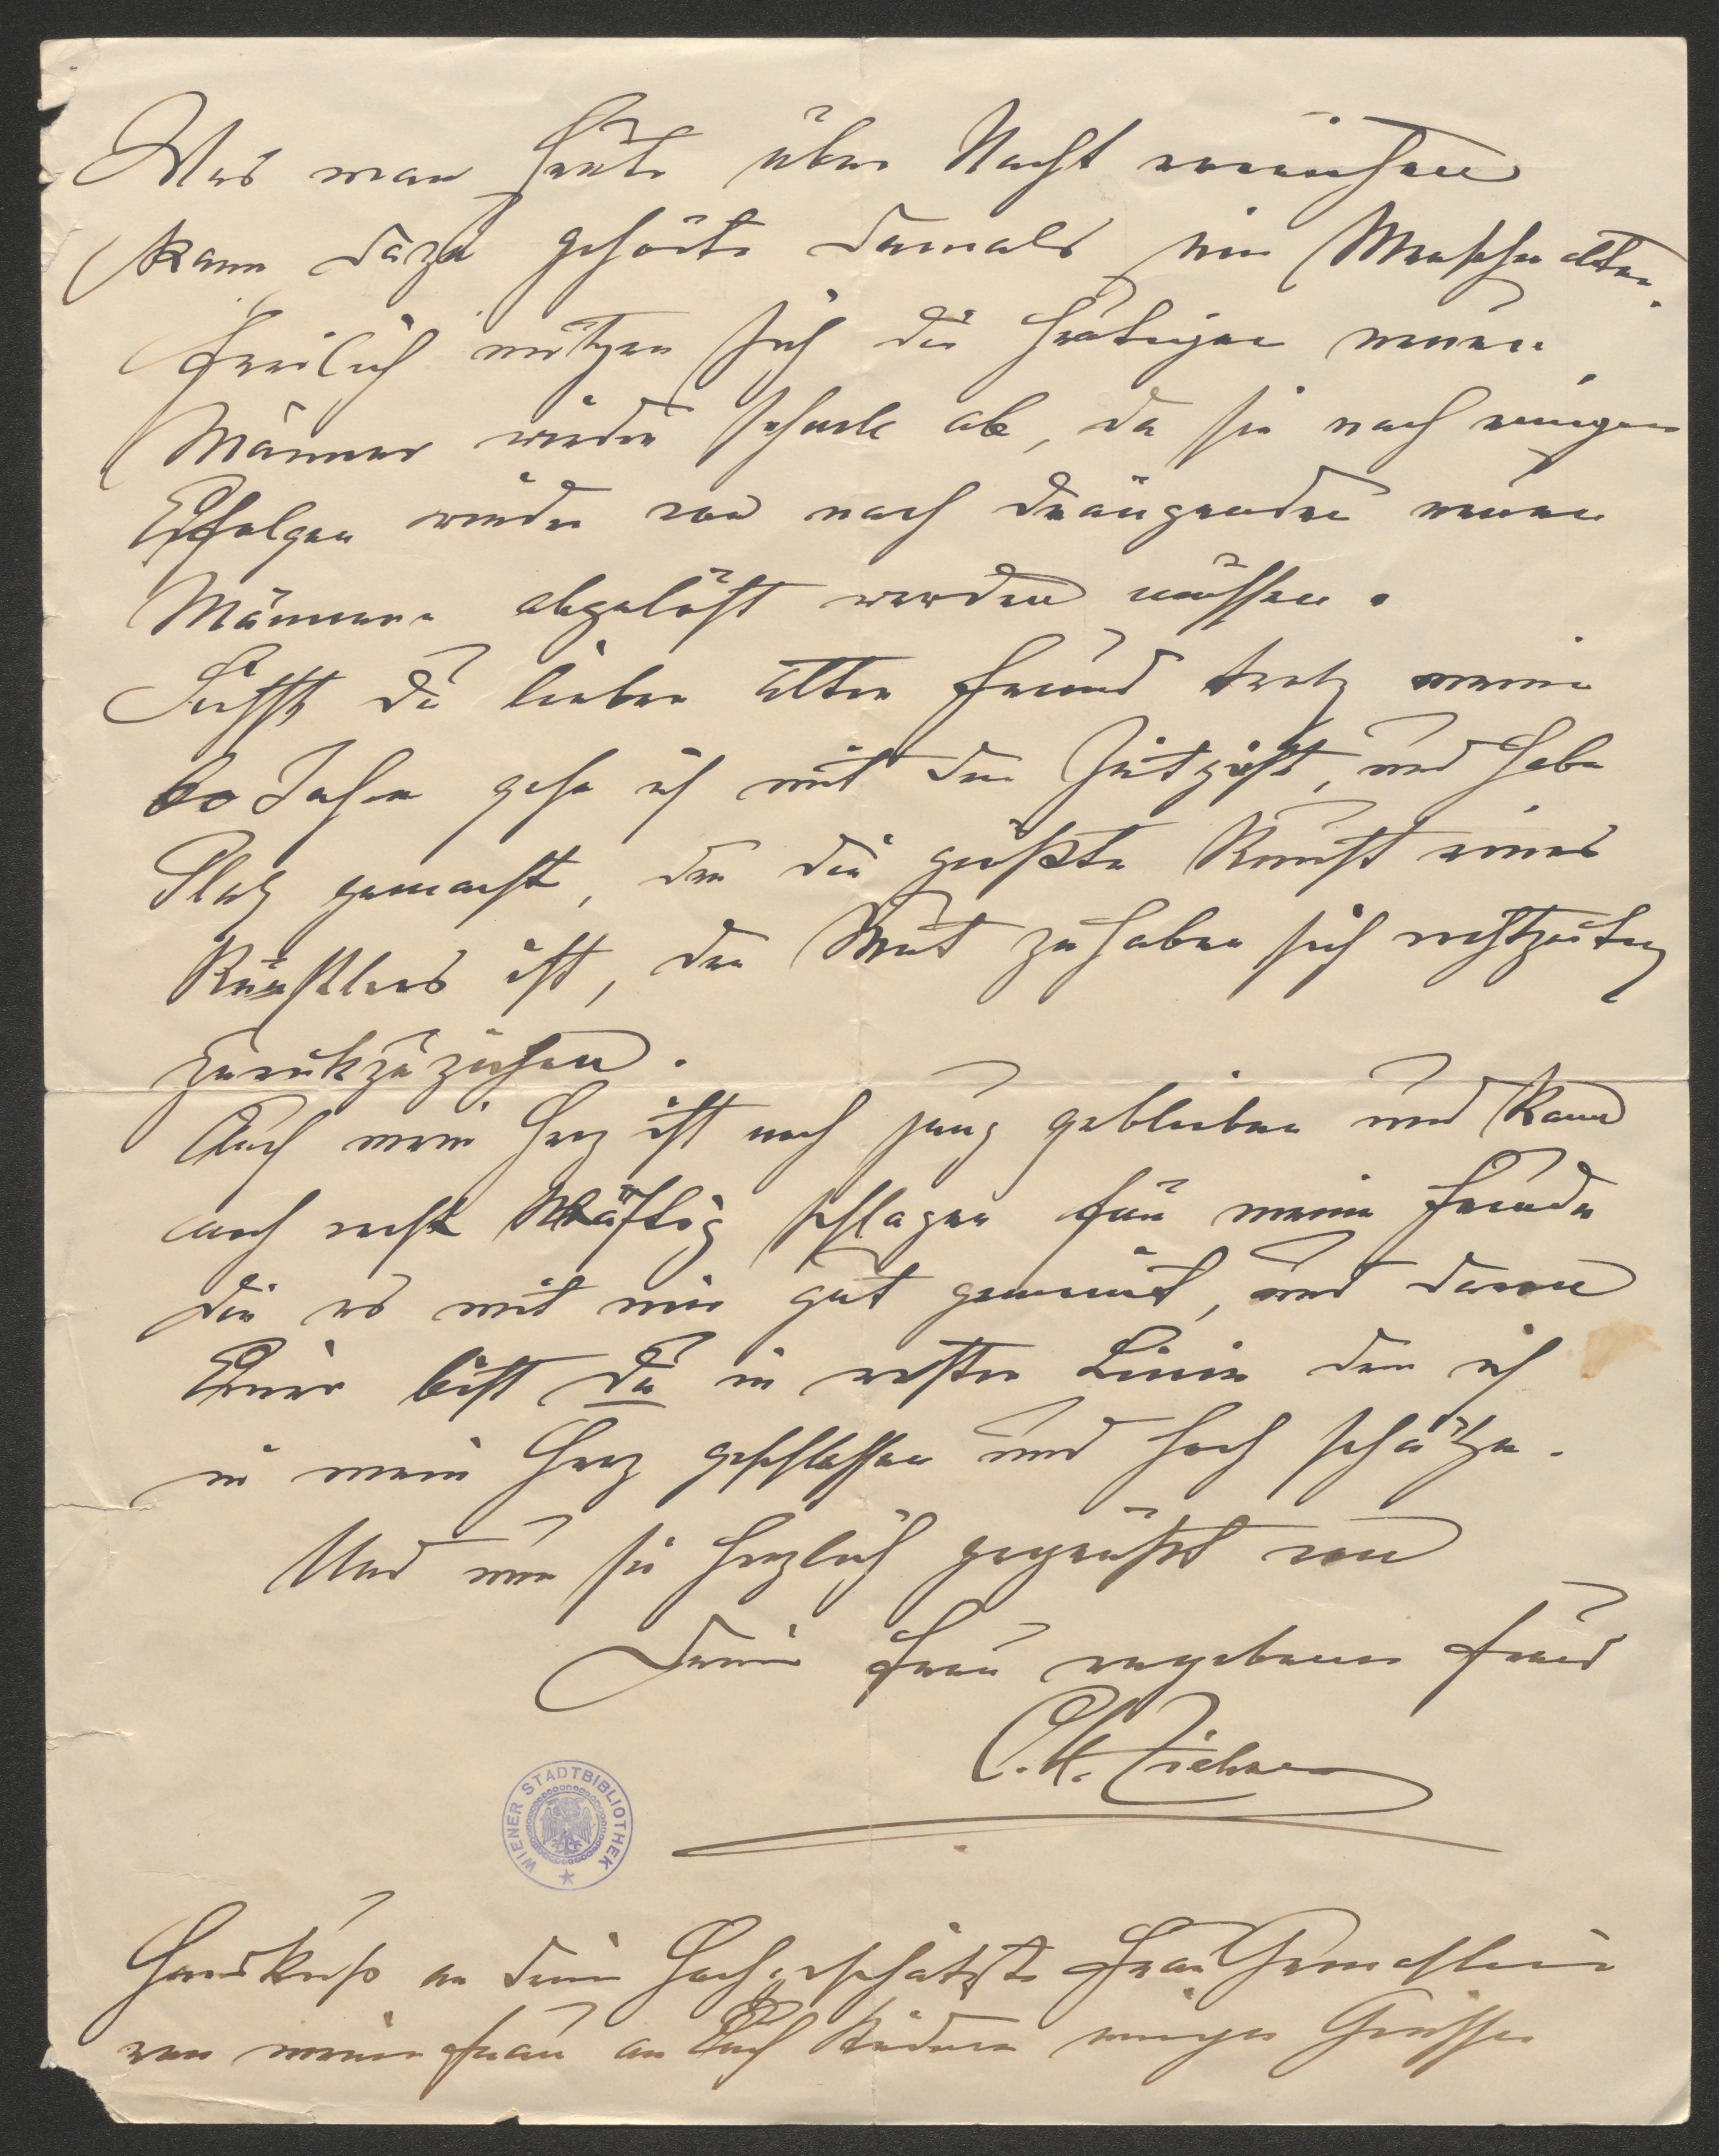 Was man heute über Nacht erreichen
kann dazu gehörte damals ein Menschenalter.
Freilich nützen sich die heutigen neuen
Männer wieder schnell ab, da sie nach einigen
Erfolgen wieder von nach drängenden neuen
Männern abgelöst werden müssen.
Siehst Du lieber alter Freund trotz meine
60 Jahre gehe ich mit dem Zeitgeist, und habe
Platz gemacht, den die größte Kunst eines
Künstlers ist, den Mut zu haben sich rechtzeitig
zurükzuziehen.
Auch mein Herz ist noch jung geblieben und kann
noch recht kräftig schlagen für meine Freunde
die es mit mir gut gemeint, und davon
Einer bist Du in erster Linie den ich
in mein Herz geschlossen und hoch schätze.
Und nun sei herzlich gegrüßt von
Deine treu ergebenen Freund
C. M. Ziehrer
WIENER STADTBIBLIOTHEK
Handkuß an Deine Hochgeschätzte Frau Gemahlin
von meiner Frau an Euch Beiden innige Grüsse